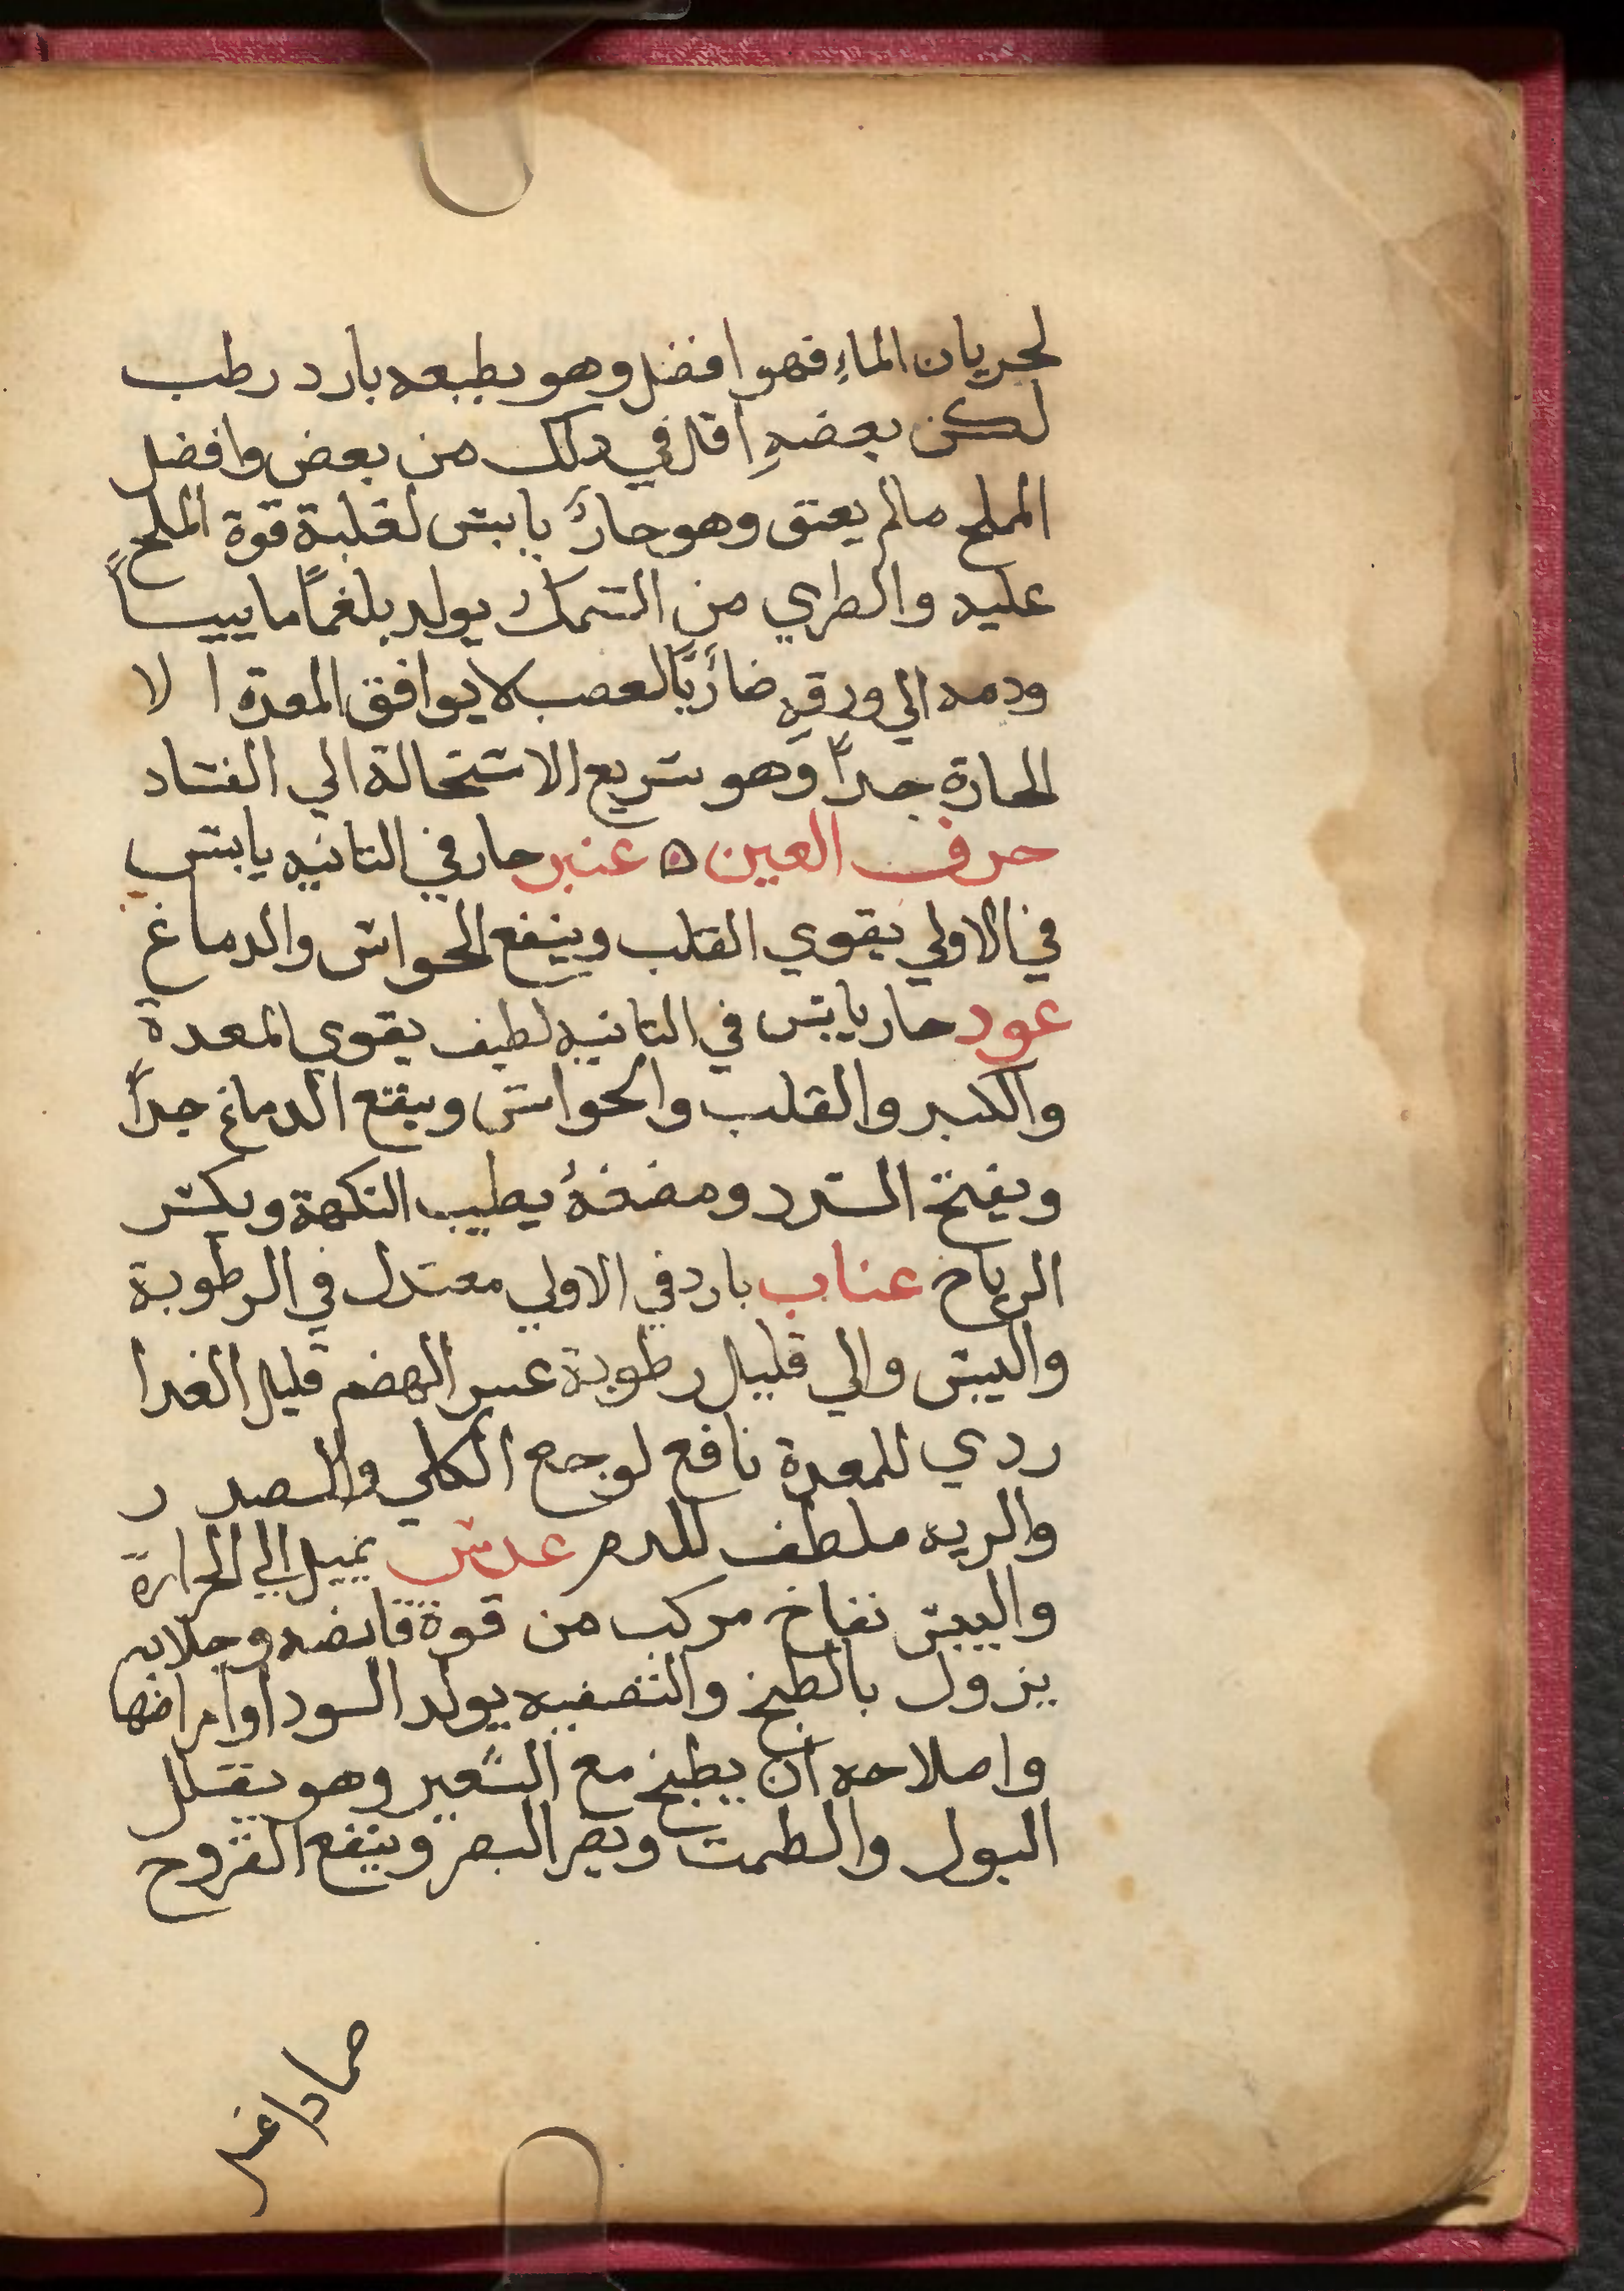 لجريان الماءِ فهو افضل وهو بطبعه بارد رطب
لكن بعضهِ اقل في دلك من بعض وافضل
الملح مالم يعتق وهو حارٌ يابس لغلبة قوة الملح
عليه والطري من السمك يولد بلغماً ماييساً
ودمه الي ورقه ضارًّا بالعصب لا يوافق المعدة ا لا
الحارة جداً وهو سريع الاستحالة الي الفساد
حرف العين ۞ عنبر حار في التانيه يابس
في الاولي يقوي القلب وينفع الحواس والدماغ
عود حار يابس في التانيه لطيف يقوي المعدة
والكبد والقلب والحواس وينفع الدماغ جداً
ويفتح السدد ومضغهُ يطيب النكهة ويكسر
الرياح عناب بارد في الاولي معتدل في الرطوبة
واليبس والي قليل رطوبة عسر الهضم قليل الغدا
ردي للمعدة نافع لوجع الكلي والصدر
والريه ملطف للدم عدس يميل الي الحرارة
واليبس نفاخ مركب من قوة قابضه وجلايه
يزول بالطبخ والتصفيه يولد السودا وامراضها
واصلاحه ان يطبخ مع الشعير وهو يقلل
البول والطمت ويضر البصر وينفع القروح